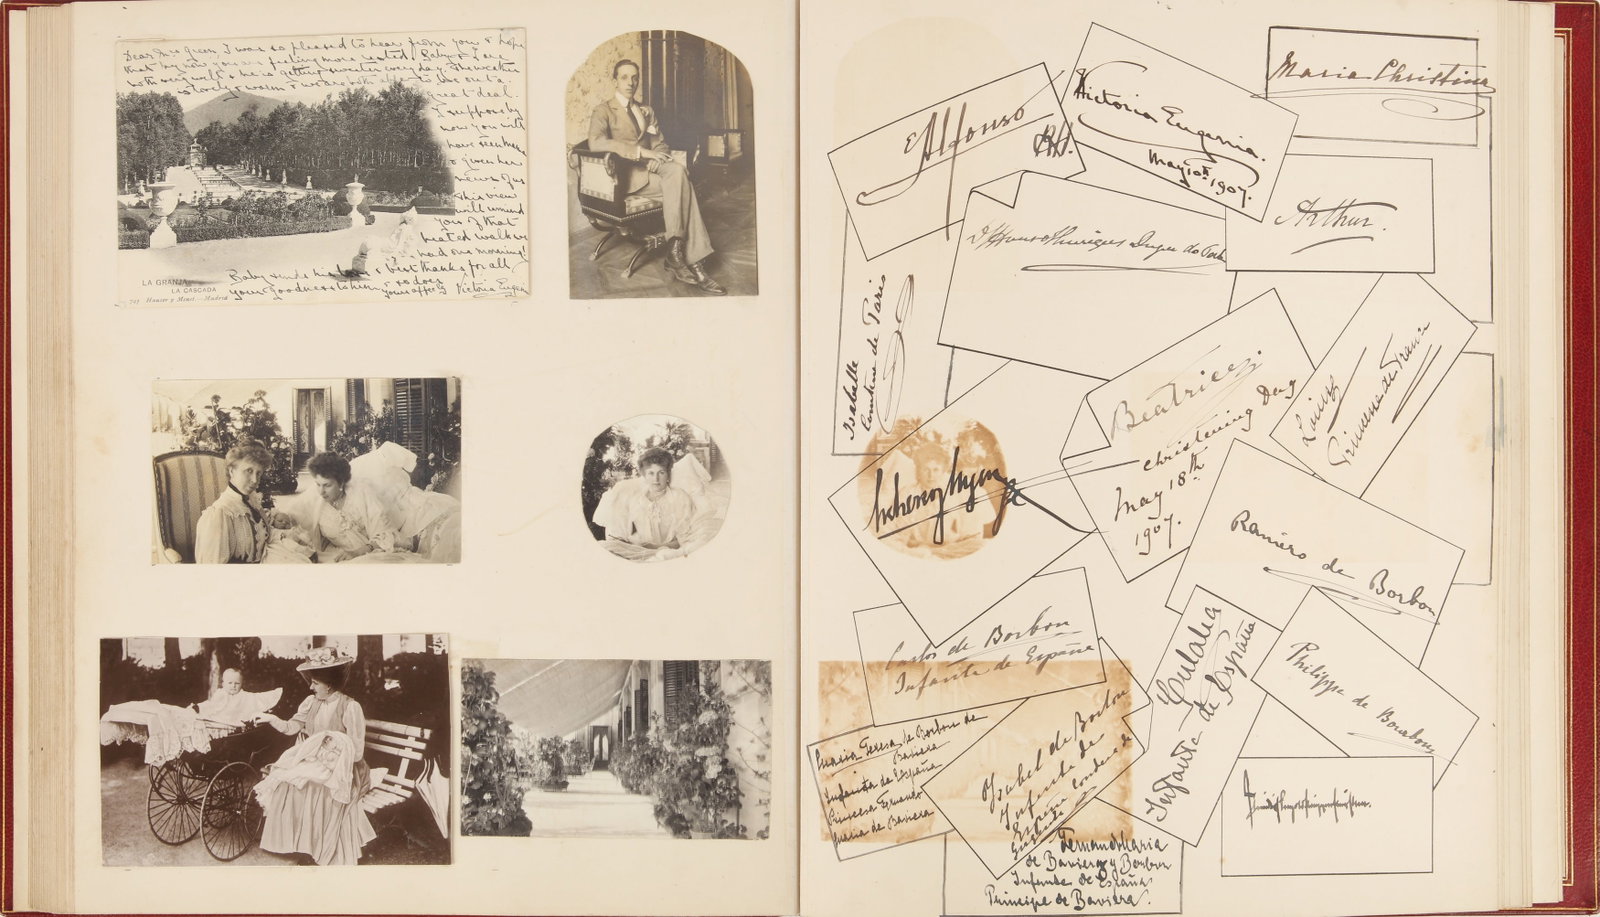 Dear Mrs Green I was so pleased to hear from you & hope
that by now you are feeling more rested. Baby & I are
both very well & he is getting sweeter every day. The weather
is lovely & warm & we are both able to be out a
great deal.
I suppose by
now you will
have seen
& given her
news of us
This view
will remind
you of that
heated walk we
had one morning!
Baby sends his love & best thanks for all
your goodness to him & so does
yours affectly Victoria Eugenia
LA GRANJA
LA CASCADA
741 Hauser y Menet.-Madrid
Alfonso
Victoria Eugenia.
May 10th 1907.
Maria Christina
Arthur.
Isabelle
Comtesse de Paris
Beatrice
christening Day
May 18th
1907.
Louise
Princesse de France
Raniero de Borbon
Carlos de Borbon
Infante de España
Eulalia
Infanta de España
Philippe de Bourbon
Maria Teresa de Borbon de
Baviera
Infanta de España
Princesa Fernando
Maria de Baviera
Ysabel de Borbon
Infanta de
España Condesa de
Girgenti
Fernando Maria
de Baviera y Borbon
Infante de España
Principe de Baviera.